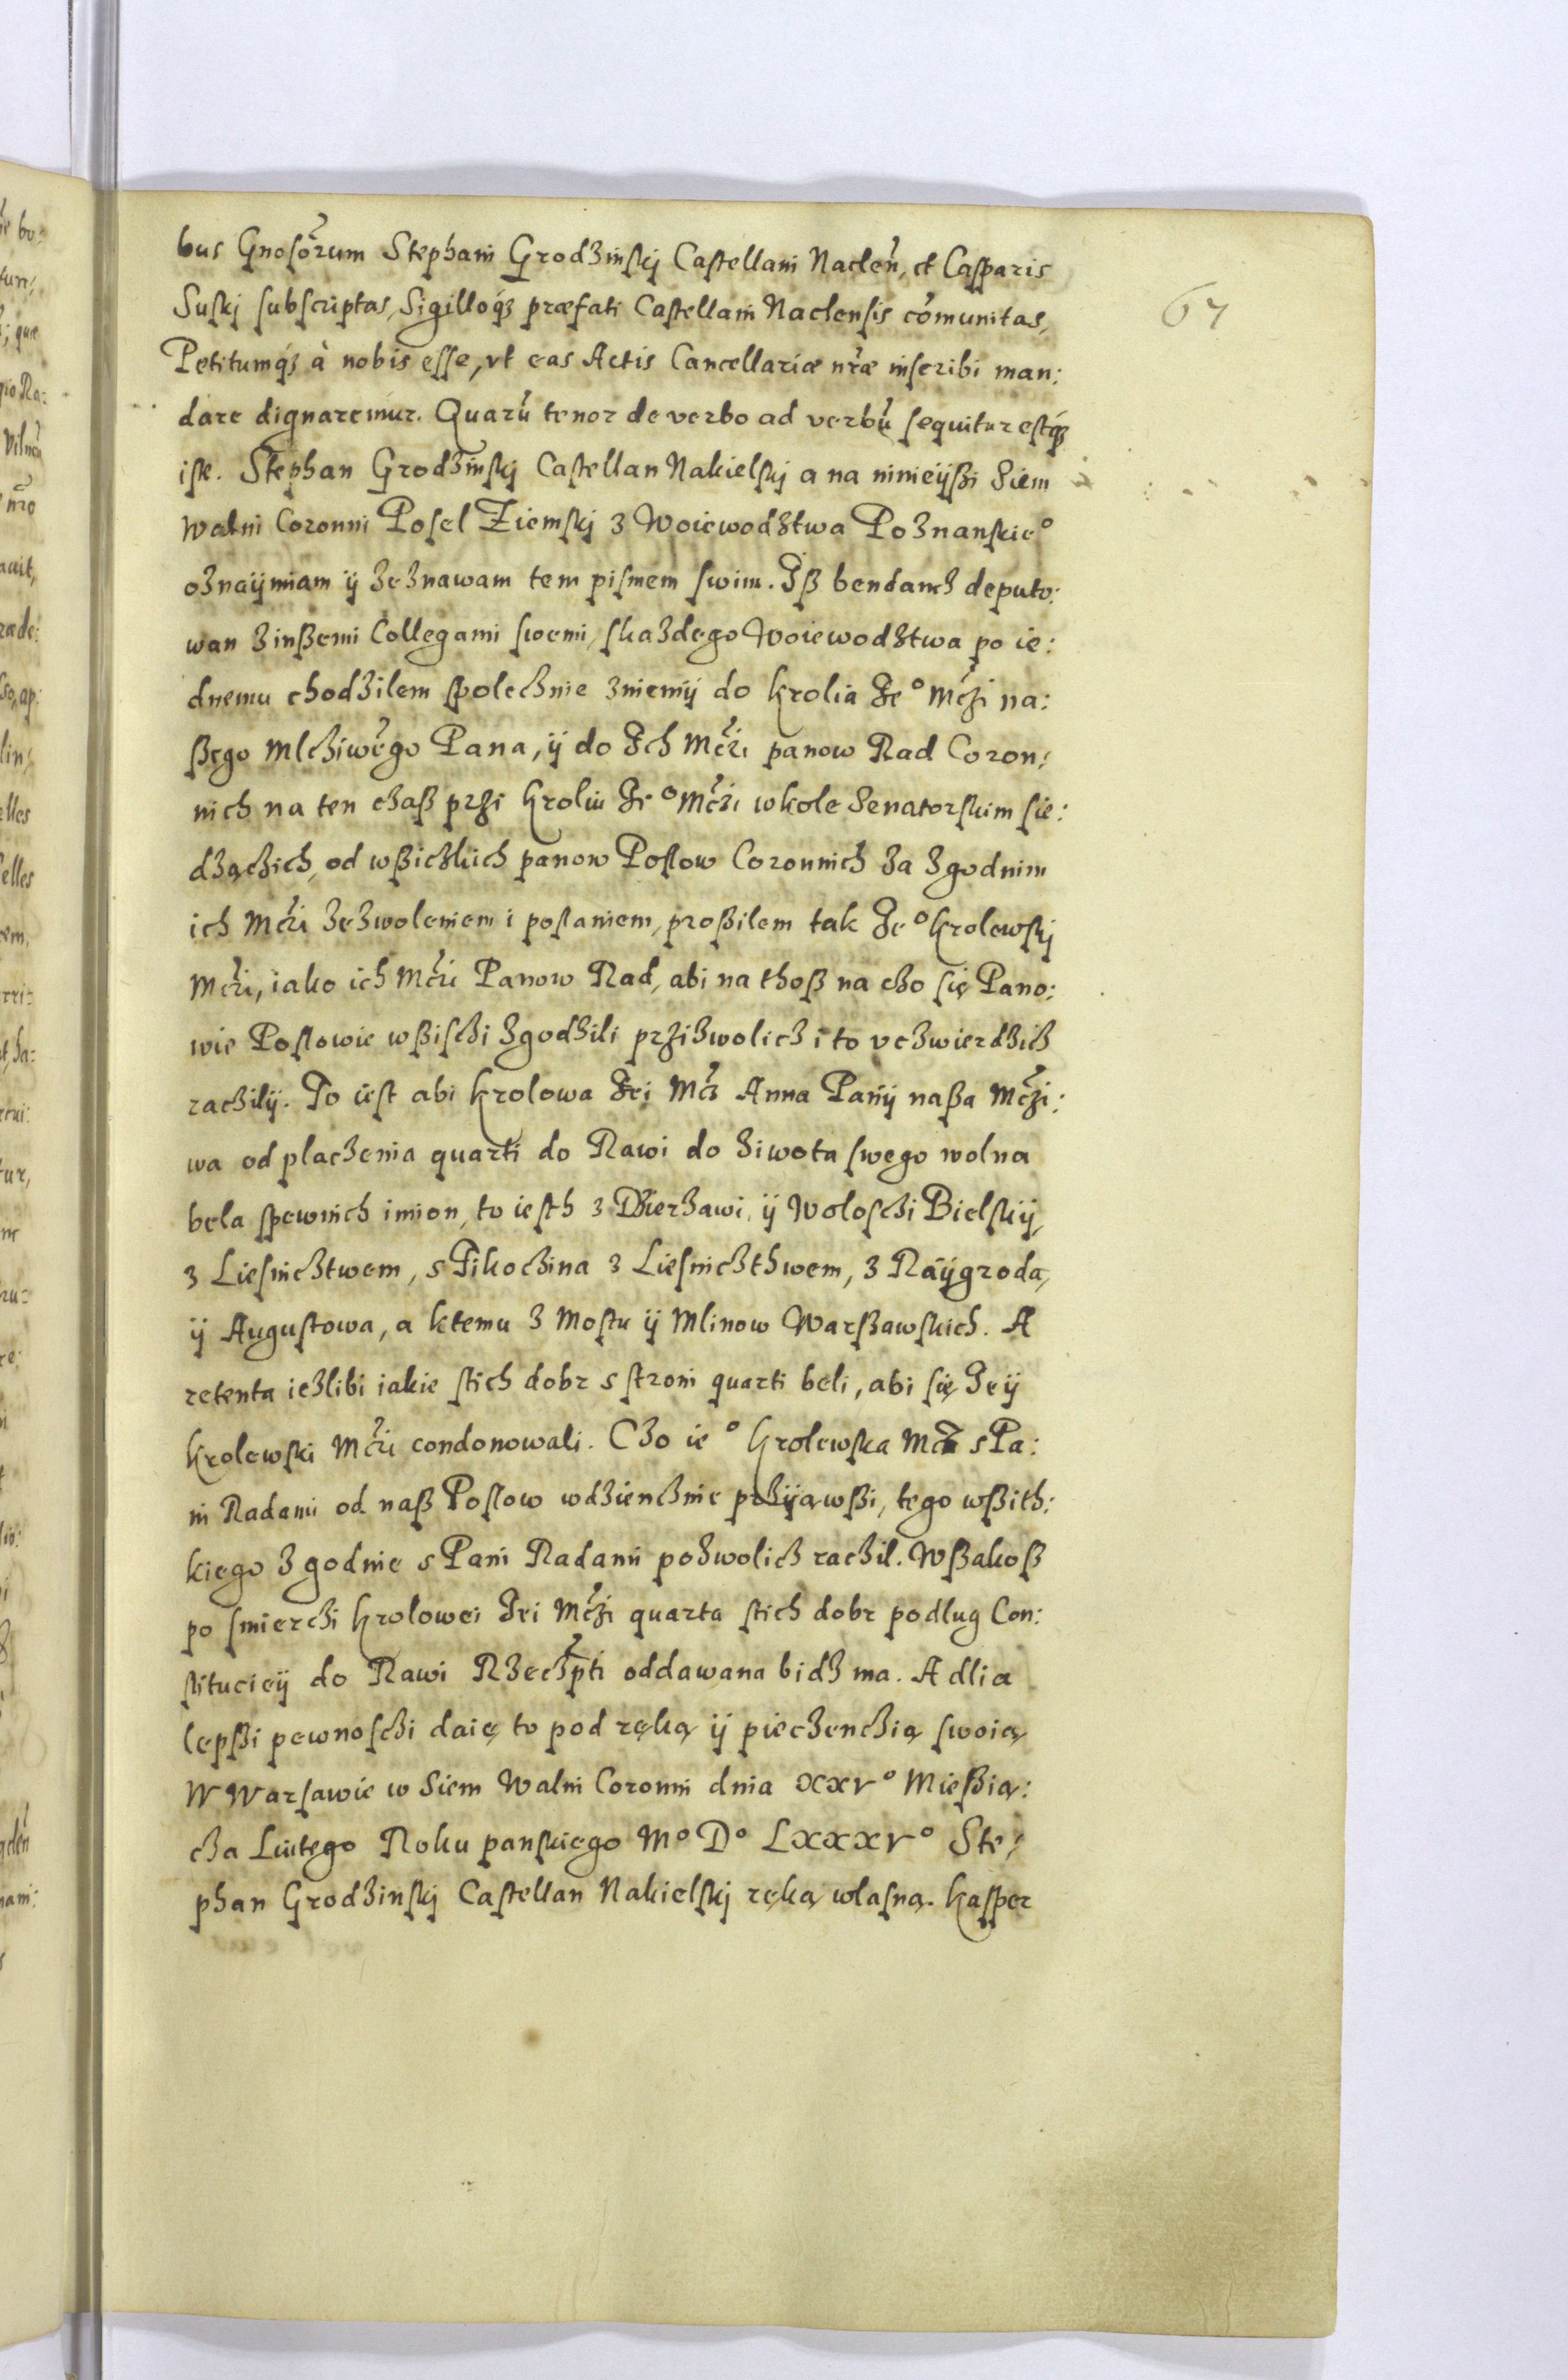 67
bus Gnosõrum Stephani Grodzinskj Castellani Naclen̄, et Casparis
Suskj subscriptas, Sigilloq̃ȝ præfati Castellani Naclensis cõmunitas,
Petitumq̃ȝ à nobis esse, vt eas Actis Cancellariæ nr̃æ inscribi man:
dare dignaremur. Quarũ tenor de verbo ad verbũ sequitur estq̃ȝ
iste. Stephan Grodzinskj Castellan Nakielskj a na ninieijßi Siem
walni Coronni Posel Ziemskj z Woiewodztwa Poznanskie°
oznaijmiam ij zeznawam tem pismem swim. Iß bendancz deputo:
wan zinßemi Collegami swemi, skazdego Woiewodztwa po ie:
dnemu chodzilem spolecznie zniemij do krolia Je° Mc̃zi na:
ßego Mlcziwẽgo Pana, ij do Jch Mc̃zi panow Rad Coron:
nich na ten czaß przi kroliu Je° Mc̃zi w kole Senatorskim sie:
dzączich, od wßiczkich panow Poslow Coronnich za zgodnim
ich Mc̃zi zezwoleniem i poslaniem, proßilem tak Je° krolewskj
Mc̃zi, iako ich Mc̃zi Panow Rad, abi na thoß na czo się Pano:
wie Poslowie wßisczi zgodzili przizwolicz i to vczwierdzicz
raczilij. To iest abi krolowa Jei Mc̃z Anna Panij naßa Mc̃zi:
wa od placzenia quarti do Rawi do ziwota swego wolna
bela spewnich imion, to iesth z Dzierzawi, ij Woloschi Bielskij,
z Liesnicztwem, s Tikoczina z Liesniczthwem, z Raijgroda,
ij Augustowa, a ktemu z Mostu ij Mlinow Warßawskich. A
retenta iezlibi iakie stich dobr s stroni quarti beli, abi się Jeij
krolewski Mc̃zi condonowali. Czo ie° krolewska Mc̃z s Pa:
ni Radami od naß Poslow wdziencznie przijąwßi, tego wßith:
kiego zgodnie s Pani Radami pozwolicz raczil. Wßakoß
po smierczi krolowei Jei Mc̃zi quarta stich dobr podlug Con:
stituciej do Rawi Rzeczp̃ti oddawana bidz ma. A dlia
lepßi pewnosczi daię to pod ręką ij pieczenczią swoią
W Warsawie w Siem Walni Coronni dnia xxv° Mießią:
cza Liutego Roku panskiego M° D° Lxxxv° Ste:
phan Grodzinskj Castellan Nakielskj ręką wlasną. kasper